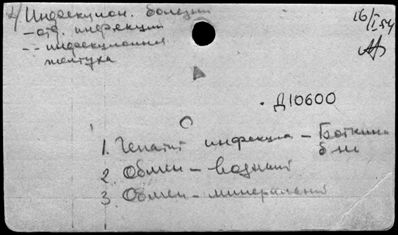 2/ Инфекцион. болезни
– отд. инфекции
– – инфекционная
желтуха
16/I 54
Д10600
1. Гепатит инфекция – Боткина
б-нь
2. Обмен – водный
3. Обмен – минеральный